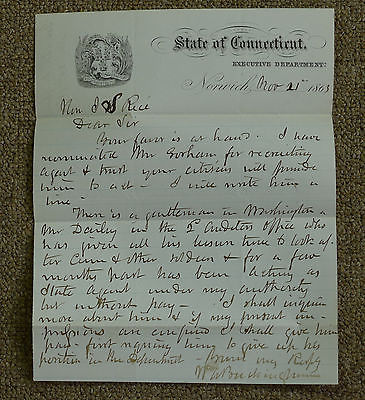 State of Connecticut,
EXECUTIVE DEPARTMENT:
Norwich, Nov 21st 1863
Hon. J S Rice
Dear Sir
Your favor is at hand. I have
nominated Mr Gorham for recruiting
agent & trust your citizens will provide
him to act - I will write him a
line -
There is a gentleman in Washington
Mr Dailey in the 2d Auditors office who
has given all his leisure time to look af
ter Conn & other soldiers & for a few
months past has been acting as
State agent under my authority
but without pay - I shall inquire
more about him & if my present im-
pressions are confirmed I shall give him
pay - first requiring him to give up his
position in the Department -
Wm A Buckingham